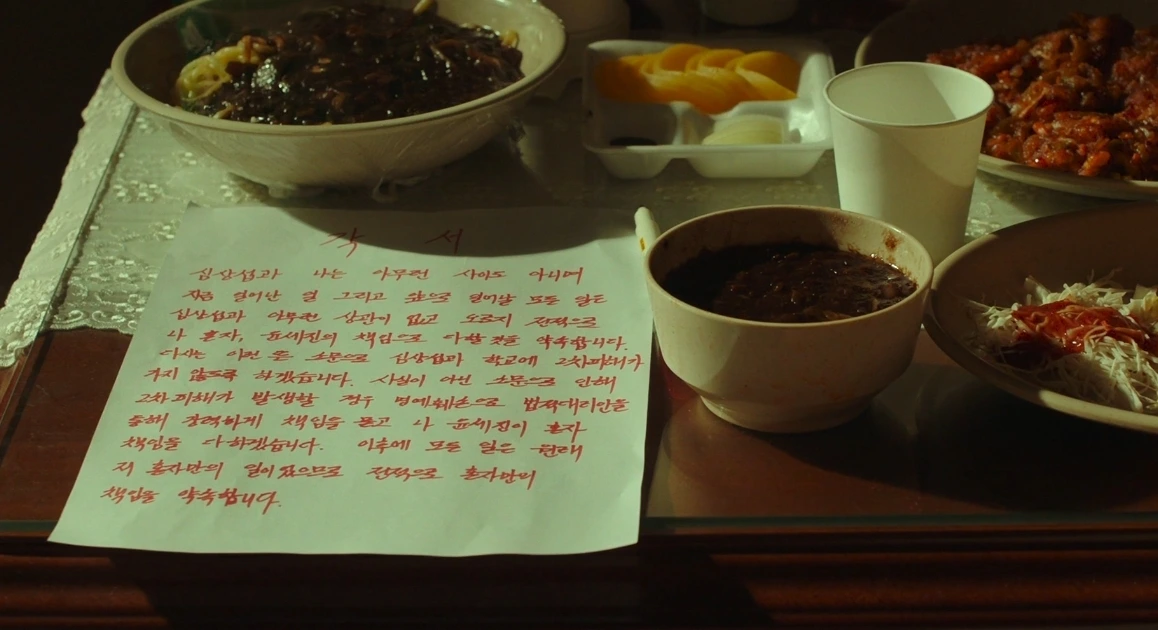 각 서
심상섭과 나는 아무런 사이도 아니며
지금 일어난 일 그리고 앞으로 일어날 모든 일은
심상섭과 아무런 상관이 없고 오로지 전적으로
나 혼자, 윤세진의 책임으로 다할 것을 약속합니다.
다시는 이런 돈 소문으로 심상섭과 학교에 2차피해가
가지 않도록 하겠습니다. 사실이 아닌 소문으로 인해
2차피해가 발생할 경우 명예훼손으로 법적대리인을
통해 강력하게 책임을 묻고 나 윤세진이 혼자
책임을 다하겠습니다. 이후에 모든 일은 원래
저 혼자만의 일이었으므로 전적으로 혼자만의
책임을 약속합니다.